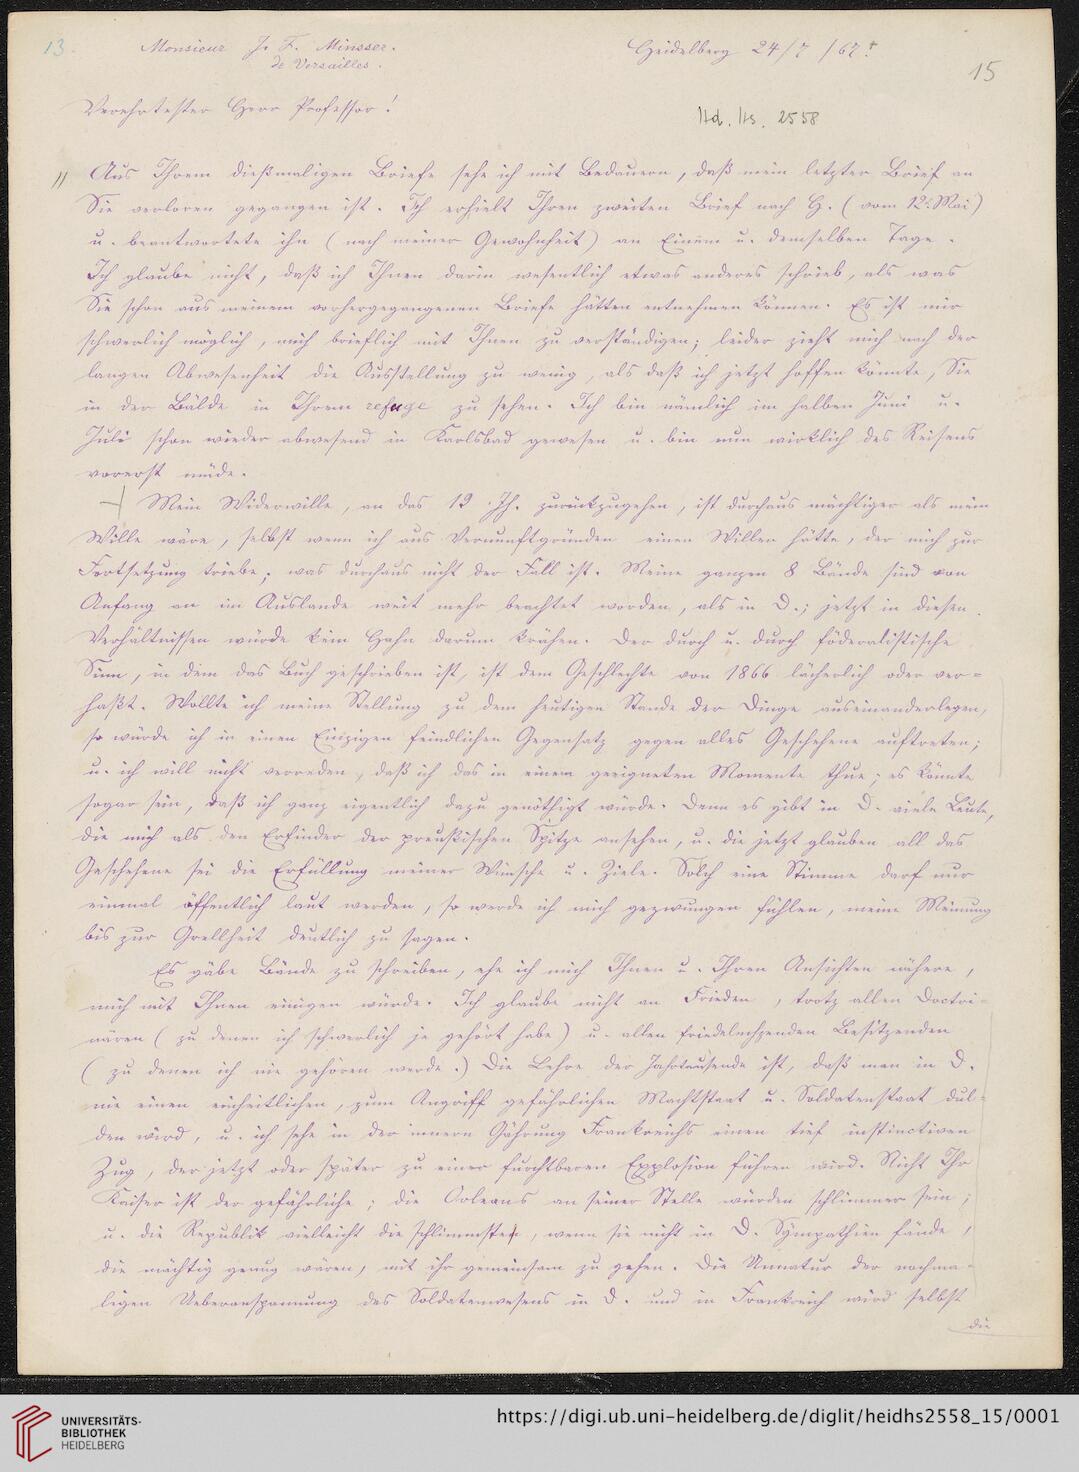 13.
Monsieur J. F. Minsser.
de Versailles.
Heidelberg 24/7 /67.
15
Verehrtester Herr Professor!
Hd. Hs. 2558
Aus Ihrem dießmaligen Briefe sehe ich mit Bedauern, daß mein letzter Brief an
Sie verloren gegangen ist. Ich erhielt Ihren zweiten Brief nach H. (vom 12. Mai)
u. beantwortete ihn (nach meiner Gewohnheit) an Einem u. demselben Tage.
Ich glaube nicht, daß ich Ihnen darin wesentlich etwas anderes schrieb, als was
Sie schon aus meinem vorhergegangenen Briefe hätten entnehmen können. Es ist mir
schwerlich möglich, mich brieflich mit Ihnen zu verständigen; leider zieht mich nach der
langen Abwesenheit die Ausstellung zu wenig, als daß ich jetzt hoffen könnte, Sie
in der Bälde in Ihrem refuge zu sehen. Ich bin nämlich im halben Juni u.
Juli schon wieder abwesend in Karlsbad gewesen u. bin nun wirklich des Reisens
vorerst müde.
Mein Widerwille, an das 19 Jh. zurückzugehen, ist durchaus mächtiger als mein
Wille wäre, selbst wenn ich aus Vernunftgründen einen Willen hätte, der mich zur
Fortsetzung triebe; was durchaus nicht der Fall ist. Meine ganzen 8 Bände sind von
Anfang an im Auslande weit mehr beachtet worden, als in D.; jetzt in diesen
Verhältnissen würde kein Hahn darum krähen. Der durch u. durch föderalistische
Sinn, in dem das Buch geschrieben ist, ist dem Geschlechte von 1866 lächerlich oder ver-
haßt. Wollte ich meine Stellung zu dem heutigen Stande der Dinge auseinanderlegen,
so würde ich in einen Einzigen feindlichen Gegensatz gegen alles Geschehene auftreten;
u. ich will nicht verreden, daß ich das in einem geeigneten Momente thue; es könnte
sogar sein, daß ich ganz eigentlich dazu genöthigt würde. Denn es gibt in D. viele Leute,
die mich als den Erfinder der preußischen Spitze ansehen, u. die jetzt glauben all das
Geschehene sei die Erfüllung meiner Wünsche u. Ziele. Solch eine Stimme darf nur
einmal öffentlich laut werden, so werde ich mich gezwungen fühlen, meine Meinung
bis zur Grellheit deutlich zu sagen.
Es gäbe Bände zu schreiben, ehe ich mich Ihnen u. Ihren Ansichten nähere,
mich mit Ihnen einigen würde. Ich glaube nicht an Frieden, trotz allen Doctri-
nären (zu denen ich schwerlich je gehört habe) u. allen friedelechzenden Besitzenden
(zu denen ich nie gehören werde.) Die Lehre der Jahrtausende ist, daß man in D.
nie einen einheitlichen, zum Angriff gefährlichen Machtstaat u. Soldatenstaat dul-
den wird, u. ich sehe in der innern Gährung Frankreichs einen tief instinctiven
Zug, der jetzt oder später zu einer furchtbaren Explosion führen wird. Nicht Ihr
Kaiser ist der gefährliche; die Orleans an seiner Stelle würden schlimmer sein;
u. die Republik vielleicht die schlimmste, wenn sie nicht in D. Sympathien fände,
die mächtig genug wären, mit ihr gemeinsam zu gehen. Die Unnatur der nochma-
ligen Ueberanspannung des Soldatenwesens in D. und in Frankreich wird selbst
die
UNIVERSITÄTS-
BIBLIOTHEK
HEIDELBERG
https://digi.ub.uni-heidelberg.de/diglit/heidhs2558_15/0001